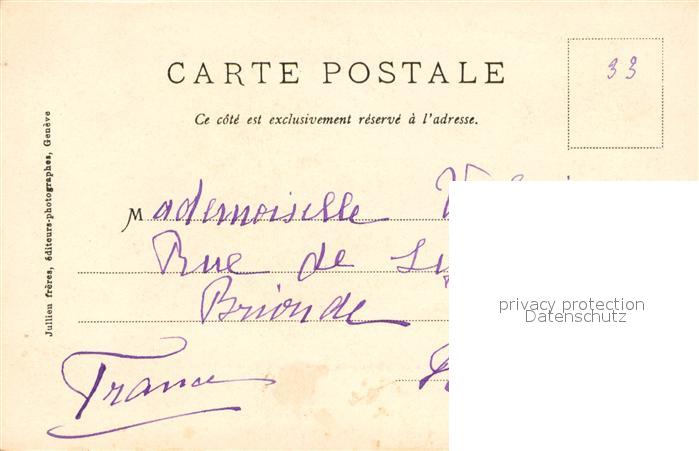 CARTE POSTALE
33
Ce côté est exclusivement réservé à l'adresse.
Jullien frères, éditeurs-photographes, Genève
Mademoiselle
Rue de
Brioude
France
privacy protection
Datenschutz